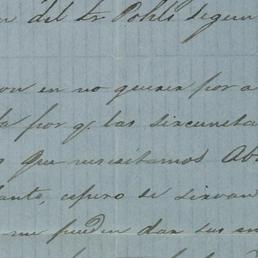 del Sr Pohls segun
en no querer por a
por q. las sircunsta
que nesesitamos Ab
espero se sirvan
me pueden dar sus